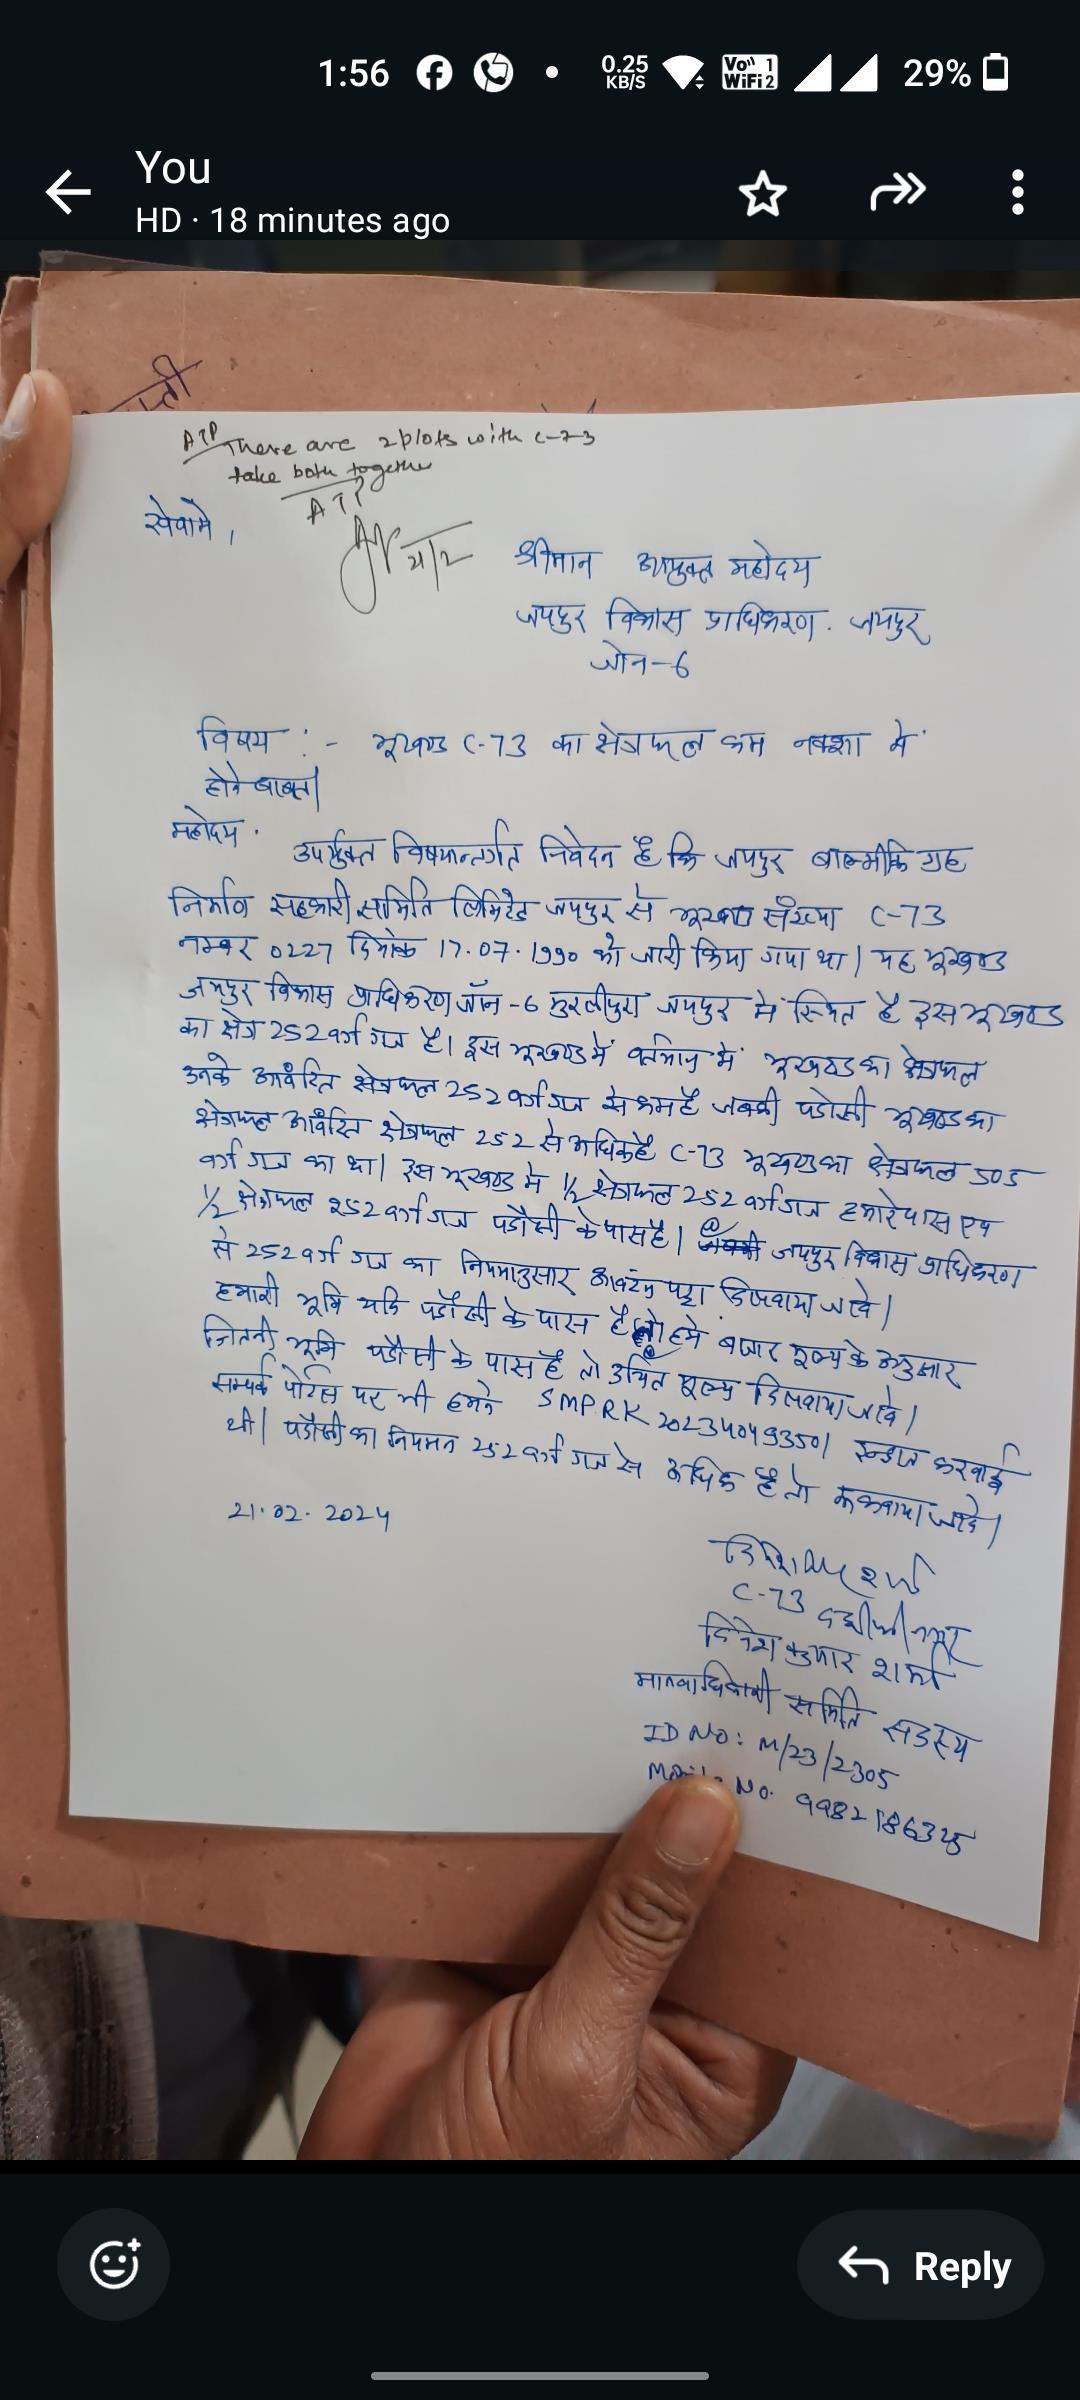 1:56
0.25 KB/S
Vo 1 WiFi 2
29%
You
HD · 18 minutes ago
ATP There are 2 plots with C-73
take both together
ATP
सेवामे,
21/2
श्रीमान उपायुक्त महोदय
जयपुर विकास प्राधिकरण. जयपुर
जोन-6
विषय :- भूखण्ड C-73 का क्षेत्रफल कम नक्शा मे
होने बाबत।
महोदय.
उपर्युक्त विषयान्तर्गत निवेदन है कि जयपुर बाल्मीकि गृह
निर्माण सहकारी समिति लिमिटेड जयपुर से भूखण्ड संख्या C-73
नम्बर 0227 दिनांक 17.07.1990 को जारी किया गया था। यह भूखण्ड
जयपुर विकास प्राधिकरण जॉन-6 मुरलीपुरा जयपुर मे स्थित है इस भूखण्ड
का क्षेत्र 252 वर्ग गज है। इस भूखण्ड में वर्तमान में भूखण्ड का क्षेत्रफल
उनके आवंटित क्षेत्रफल 252 वर्ग गज से कम है जबकी पडोसी भूखण्ड का
क्षेत्रफल आवंटित क्षेत्रफल 252 से अधिक है C-73 भूखण्ड का क्षेत्रफल 505
वर्ग गज का था। इस भूखण्ड मे 1/2 क्षेत्रफल 252 वर्ग गज हमारे पास एव
1/2 क्षेत्रफल 252 वर्ग गज पडौसी के पास है। जयपुर विकास प्राधिकरण
से 252 वर्ग गज का नियमानुसार आवंटन पट्टा दिलवाया जावे।
हमारी भूमि यदि पडौसी के पास है तो हमे बाजार मूल्य के अनुसार
जितनी भूमि पडौसी के पास है तो उचित मूल्य दिलवाया जावे।
सम्पर्क पोर्टल पर भी हमने SMPRK 20234049350। इन्द्राज करवाई
थी। पडौसी का नियमन 252 वर्ग गज से अधिक है तो रूकवाया जावे।
21.02.2024
C-73
दिनेश कुमार शर्मा
मानवाधिकारी समिति सदस्य
ID No: M/23/2305
No. 9982186325
Reply